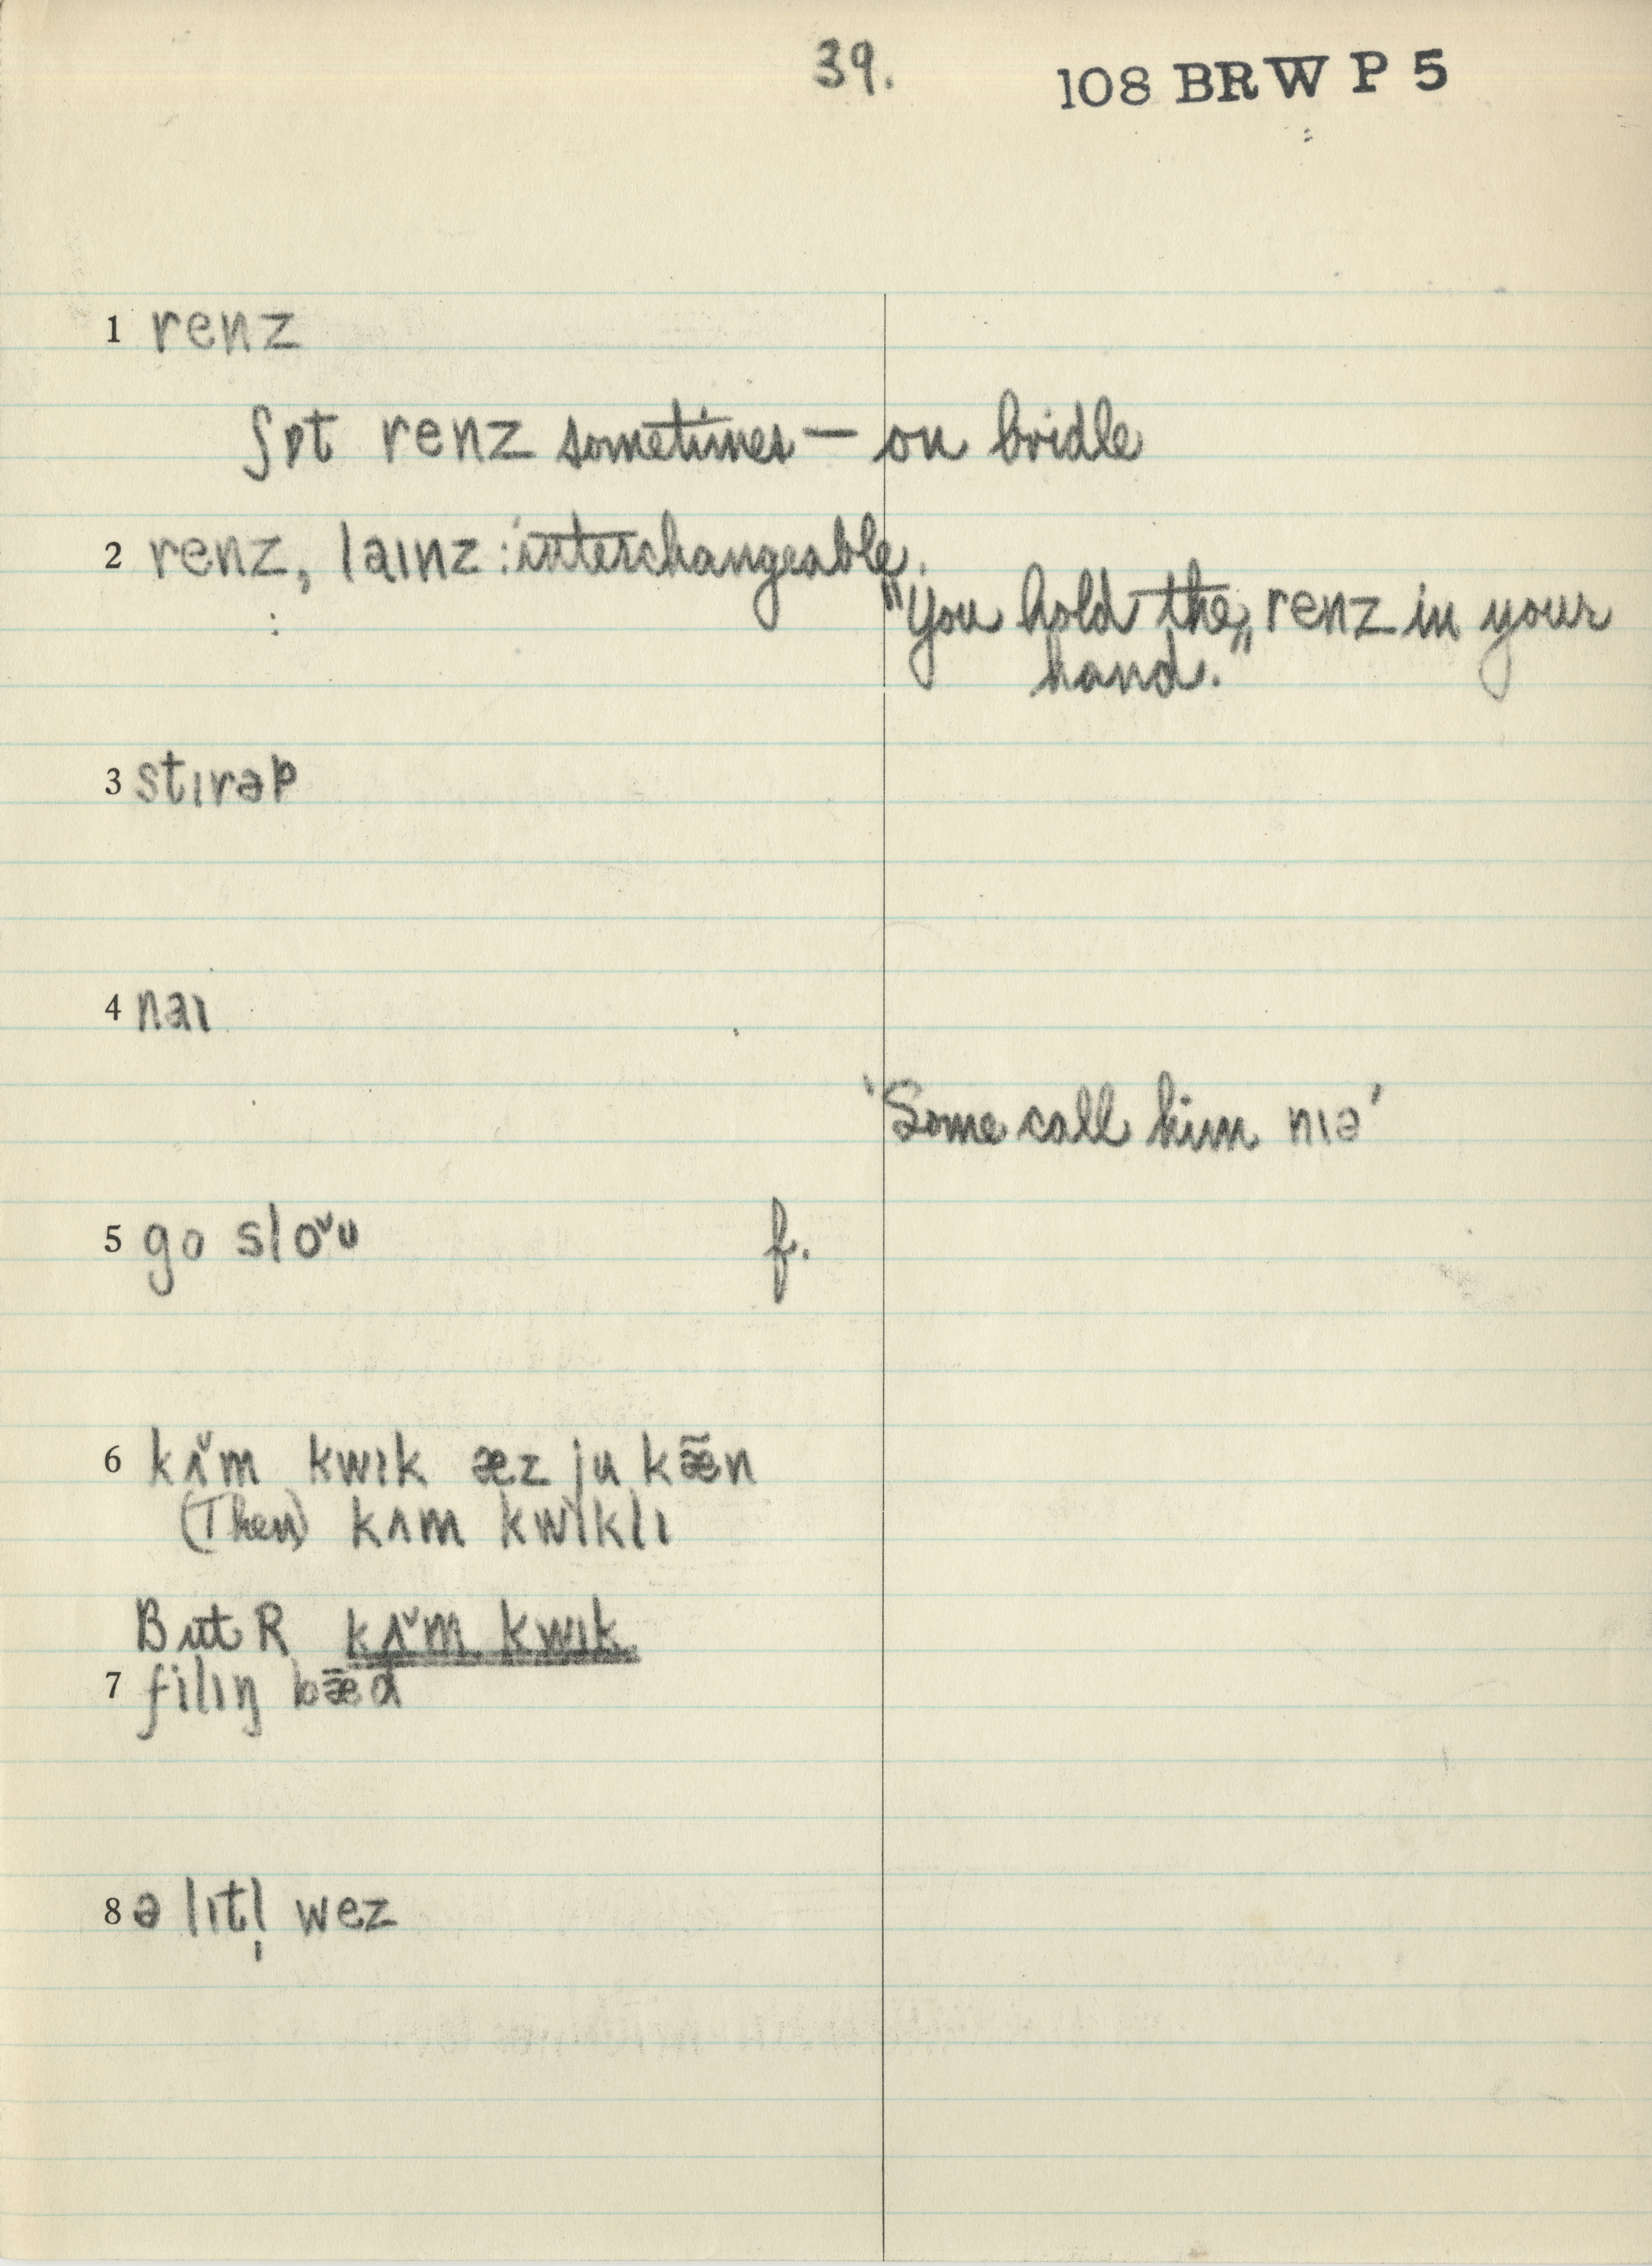 39. 108 BRW P 5
1 renz
ʃɒt renz sometimes — on bridle
2 renz, laɪnz : interchangeable.
"You hold the renz in your
hand."
3 stɪrəp
4 naɪ
'Some call him nɪə'
5 go sloˇu f.
6 kʌ̌m kwɪk æz ju kæ̃n
(Then) kʌm kwɪklɪ
But R kʌ̌m kwɪk
7 filɪŋ bæ̃d
8 ə lɪtl̩ wez